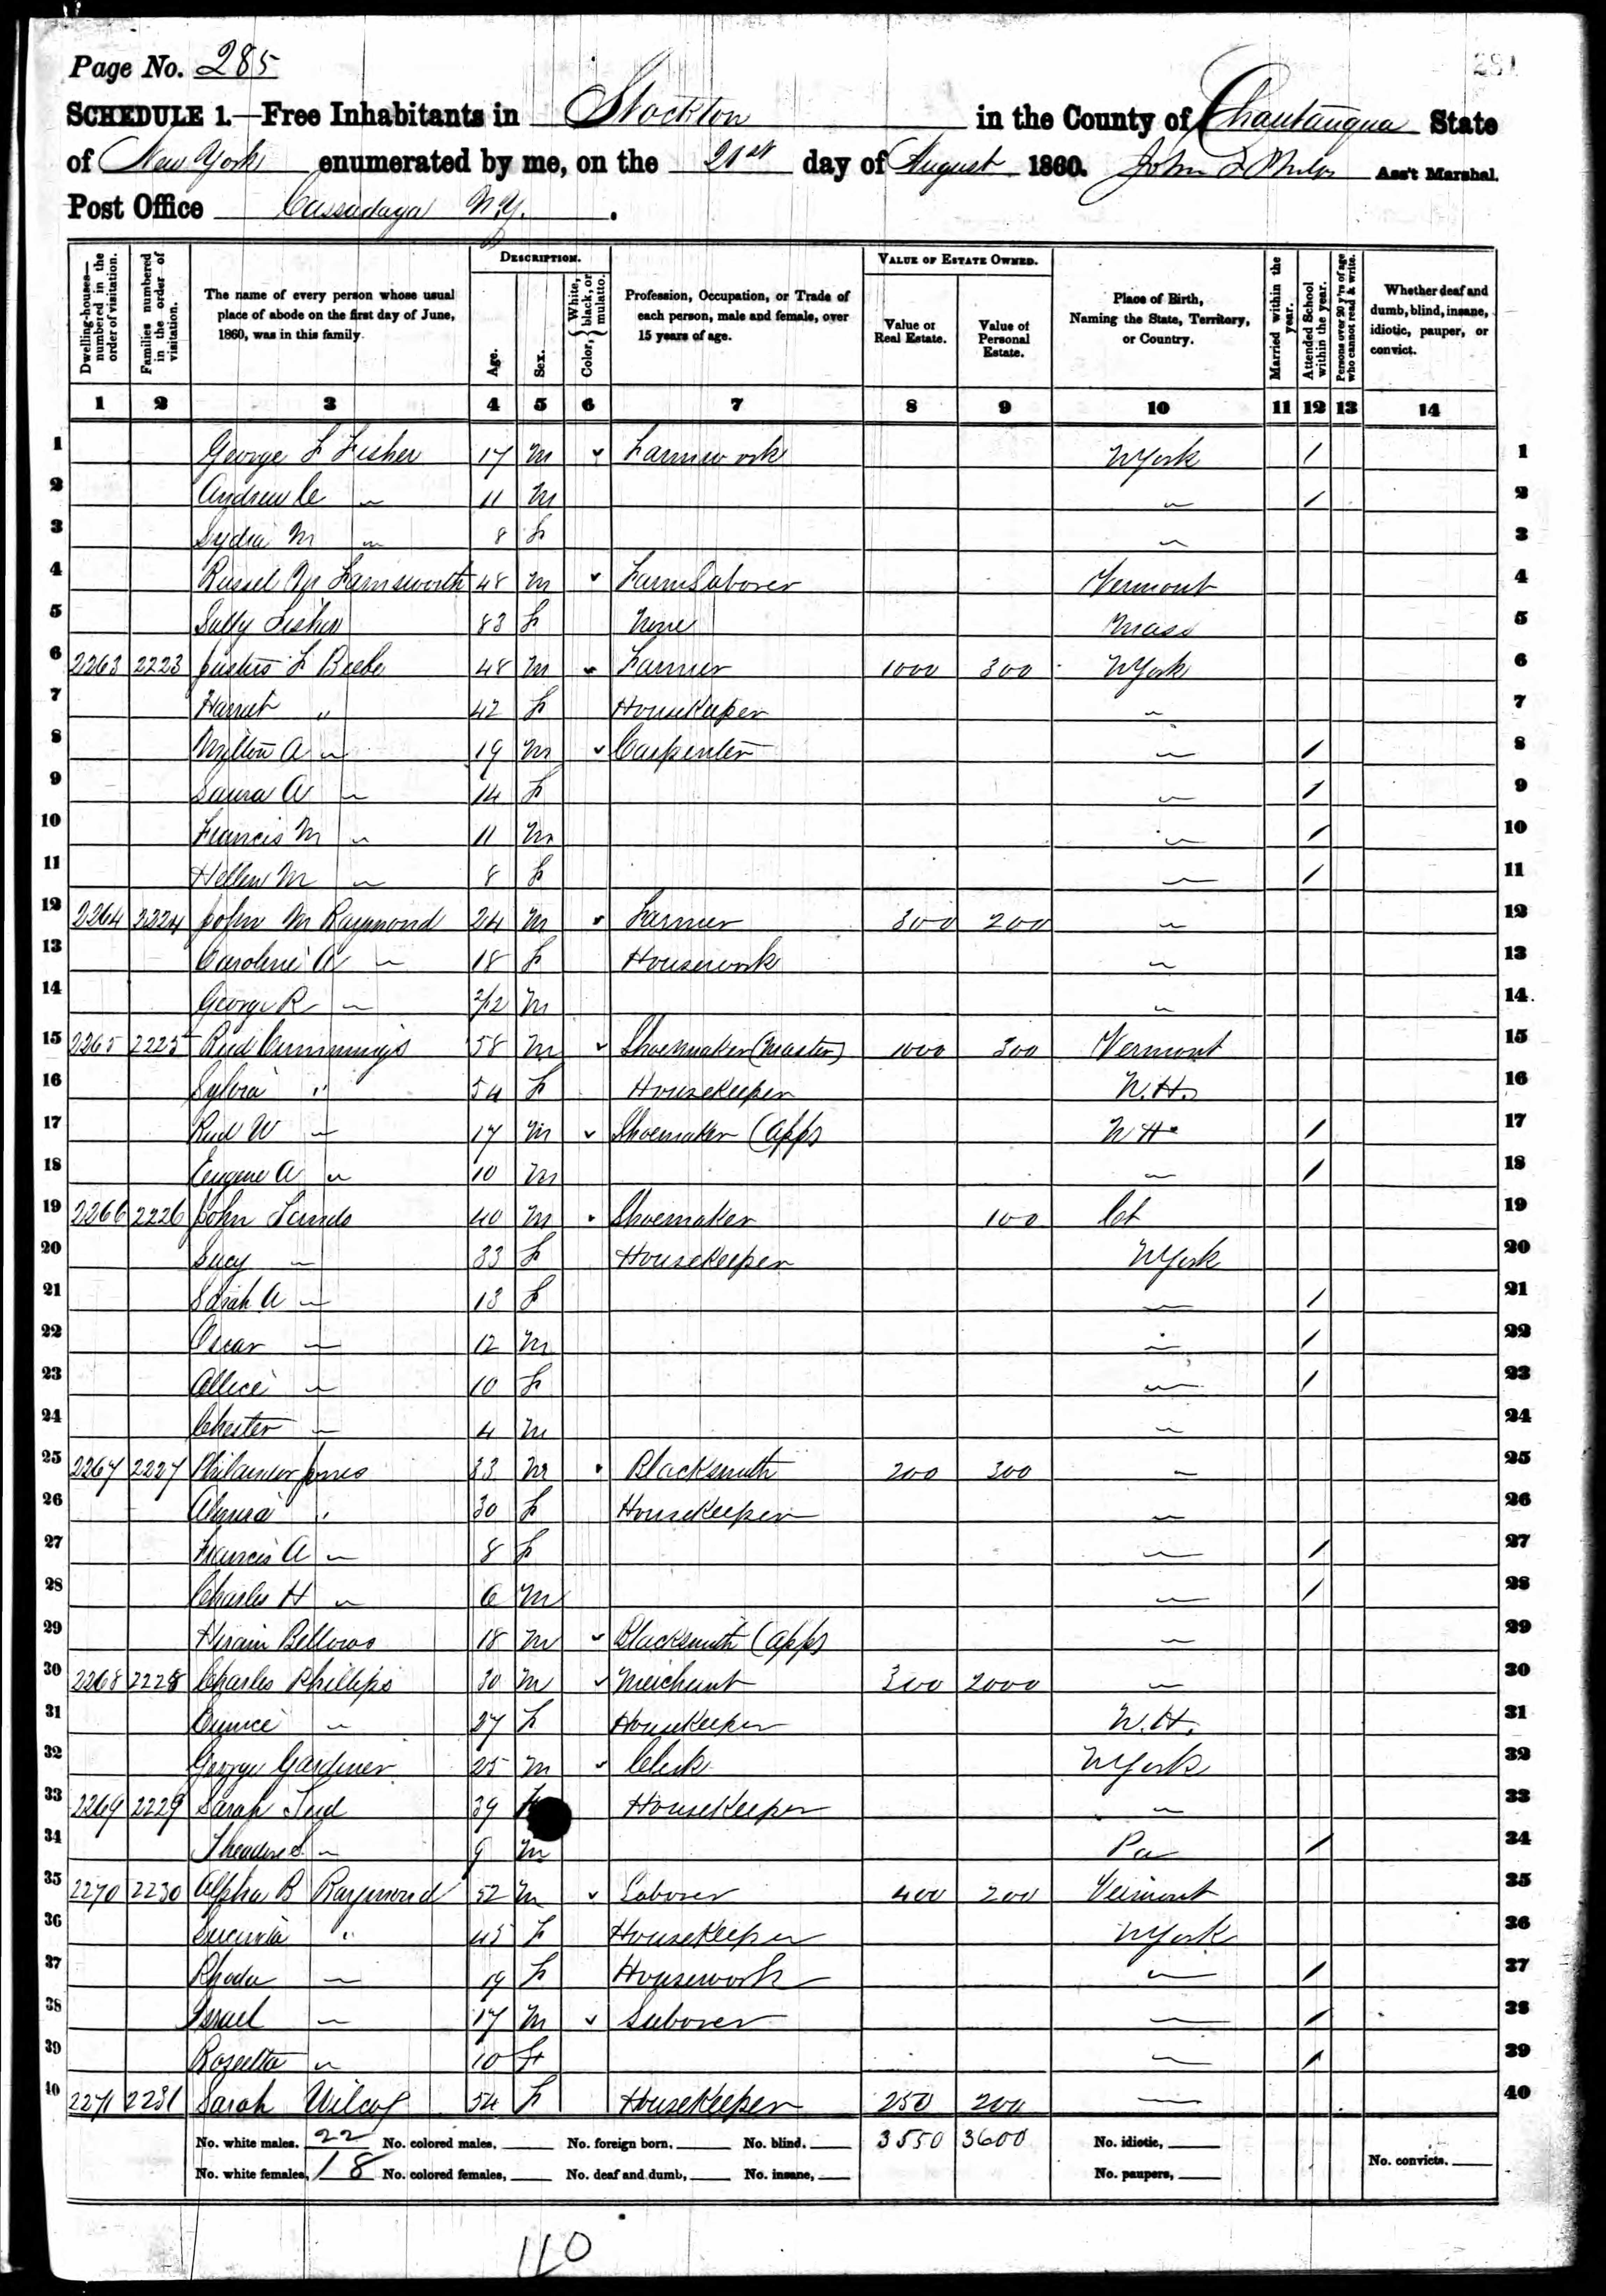 Page No. 285
SCHEDULE 1.—Free Inhabitants in Stockton in the County of Chautauqua State
of New York enumerated by me, on the 21st day of August 1860. John Ass't Marshal.
Post Office Cassadaga N.Y.
Dwelling-houses—numbered in the order of visitation.
Families numbered in the order of visitation.
The name of every person whose usual place of abode on the first day of June, 1860, was in this family.
DESCRIPTION.
Age.
Sex.
Color, { White, black, or mulatto.
Profession, Occupation, or Trade of each person, male and female, over 15 years of age.
VALUE OF ESTATE OWNED.
Value of Real Estate.
Value of Personal Estate.
Place of Birth, Naming the State, Territory, or Country.
Married within the year.
Attended School within the year.
Persons over 20 y'rs of age who cannot read & write.
Whether deaf and dumb, blind, insane, idiotic, pauper, or convict.
1 2 3 4 5 6 7 8 9 10 11 12 13 14
1 George F Fisher 17 M Farm work N York / 1
2 Andrew C " 11 M " / 2
3 Lydia M " 8 F " 3
4 Russel Farnsworth 48 M Farm Laborer Vermont 4
5 Sally Fisher 83 F None Mass 5
6 2263 2223 Justus F Beebe 48 M Farmer 1000 300 N York 6
7 Harriet " 42 F HouseKeeper " 7
8 Milton A " 19 M Carpenter " / 8
9 Laura A " 14 F " / 9
10 Francis M " 11 M " / 10
11 Hellen M " 8 F " / 11
12 2264 2224 John M Raymond 24 M Farmer 300 200 " 12
13 Caroline A " 18 F Housework " 13
14 George R " 2/12 M " 14
15 2265 2225 Reed Cummings 58 M Shoemaker (Master) 1000 300 Vermont 15
16 Sylvia " 54 F HouseKeeper N.H. 16
17 Reed W " 17 M Shoemaker (App) N H / 17
18 Eugene A " 10 M " / 18
19 2266 2226 John Sands 40 M Shoemaker 100 Ct 19
20 Lucy " 33 F HouseKeeper N York 20
21 Sarah A " 13 F " / 21
22 Oscar " 12 M " / 22
23 Allice " 10 F " / 23
24 Chester " 4 M " 24
25 2267 2227 Philander Jones 33 M Blacksmith 200 300 " 25
26 Almira " 30 F HouseKeeper " 26
27 Francis A " 8 F " / 27
28 Charles H " 6 M " / 28
29 Hiram Bellows 18 M Blacksmith (App) " 29
30 2268 2228 Charles Phillips 30 M Merchant 300 2000 " 30
31 Eunice " 27 F HouseKeeper N.H. 31
32 George Gardiner 25 M Clerk N York 32
33 2269 2229 Sarah 39 HouseKeeper " 33
34 Theadore S " 9 M Pa / 34
35 2270 2230 Alpha B Raymond 52 M Laborer 400 200 Vermont 35
36 Lucinda " 45 F HouseKeeper N York 36
37 Rhoda " 19 F Housework " / 37
38 Israel " 17 M Laborer " / 38
39 Rosetta " 10 F " / 39
40 2271 2231 Sarah Wilcox 54 F HouseKeeper 250 200 " 40
No. white males, 22 No. colored males, No. foreign born, No. blind, 3550 3600 No. idiotic,
No. white females, 18 No. colored females, No. deaf and dumb, No. insane, No. paupers, No. convicts.
110